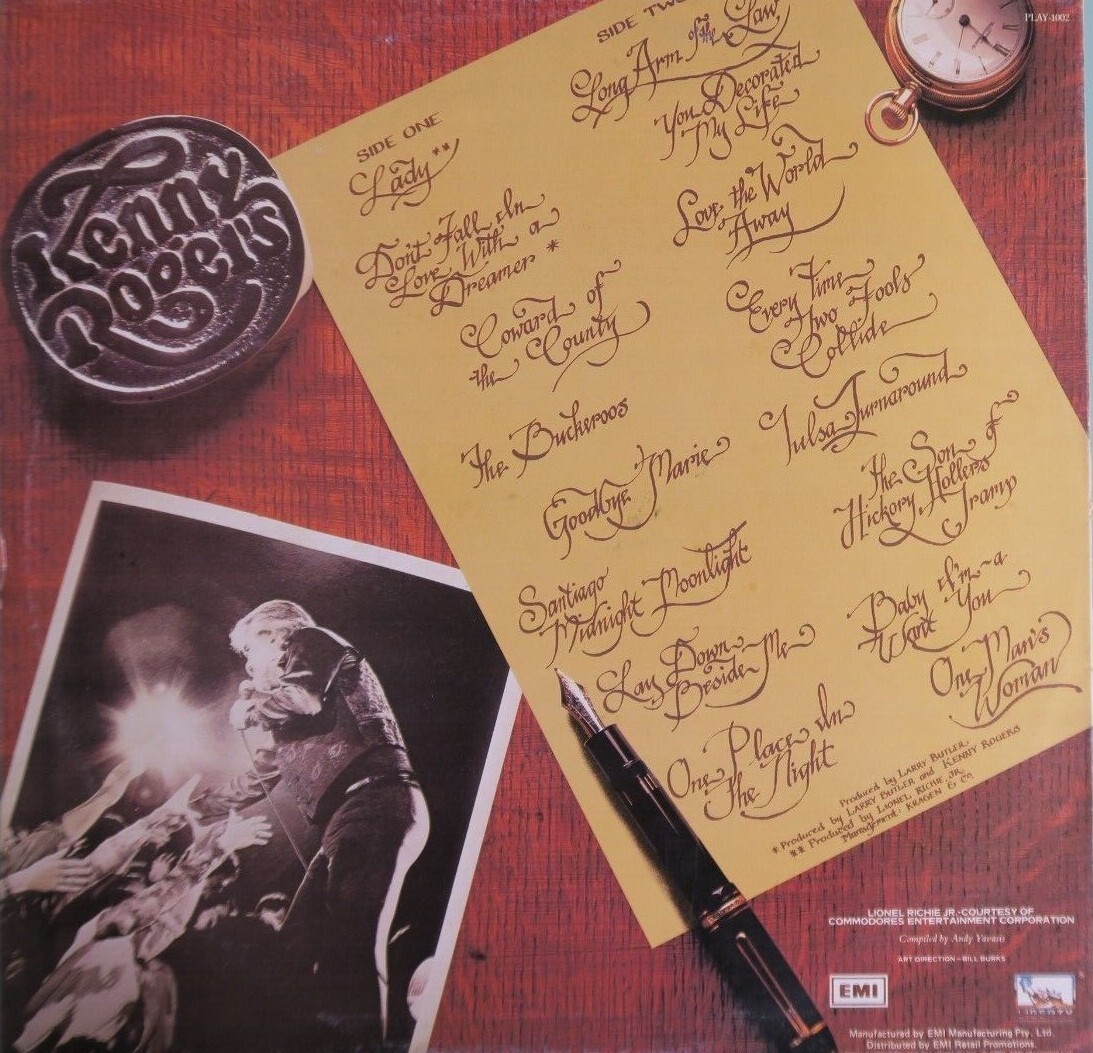 PLAY-1002
Kenny
Rogers
SIDE ONE
Lady**
Don't Fall In
Love With a
Dreamer *
Coward of
the County
The Buckeroos
Goodbye Marie
Santiago
Midnight Moonlight
Lay Down
Beside Me
One Place In
The Night
SIDE TWO
Long Arm of the Law
You Decorated
My Life
Love the World
Away
Every Time
Two Fools
Collide
Tulsa Turnaround
The Son of
Hickory Hollers
Tramp
Baby I'm-a
Want You
One Man's
Woman
Produced by LARRY BUTLER
* Produced by LARRY BUTLER and KENNY ROGERS
** Produced by LIONEL RICHIE JR.
Management: KRAGEN & Co
LIONEL RICHIE JR-COURTESY OF
COMMODORES ENTERTAINMENT CORPORATION
Compiled by Andy Yavasis
ART DIRECTION-BILL BURKS
EMI
LIBERTY
Manufactured by EMI Manufacturing Pty. Ltd.
Distributed by EMI Retail Promotions.